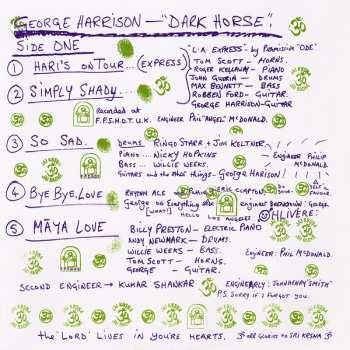 GEORGE HARRISON — "DARK HORSE".
SIDE ONE
① HARI'S ON TOUR... (EXPRESS)
"L.A. EXPRESS" by Permission "ODE"
TOM SCOTT - HORNS.
ROGER KELLAWAY - PIANO
JOHN GUERIN - DRUMS
MAX BENNETT - BASS
ROBBEN FORD - GUITAR.
GEORGE HARRISON - GUITAR
② SIMPLY SHADY...
Recorded at
F.P.S.H.O.T. U.K. ENGINEER PHIL "ANGEL" McDONALD.
③ SO SAD.
DRUMS RINGO STARR + JIM KELTNER.
PIANO.... NICKY HOPKINS
BASS... WILLIE WEEKS.
GUITARS and the other things - GEORGE HARISON!
ENGINEER PHILIP McDONALD
④ BYE BYE, LOVE
RHYTHM ACE ERIC CLAPTON
George on Everything else
ENGINEER George.
[WHAT!] HELLO LOS ANGELES
OHLIVERE:
⑤ MĀYA LOVE
BILLY PRESTON - ELECTRIC PIANO
ANDY NEWMARK - DRUMS.
WILLIE WEEKS - BASS.
TOM SCOTT - HORNS.
GEORGE - GUITAR.
ENGINEER: PHIL McDONALD.
SECOND ENGINEER → KUMAR SHANKAR ॐ
ENGINEARLY: JOHN HENRY "SMITH"
P.S. SORRY if I FORGOT YOU.
the 'LORD' LIVES IN YOU'RE HEARTS. ॐ all GLORIES to SRI KRSNA ॐ